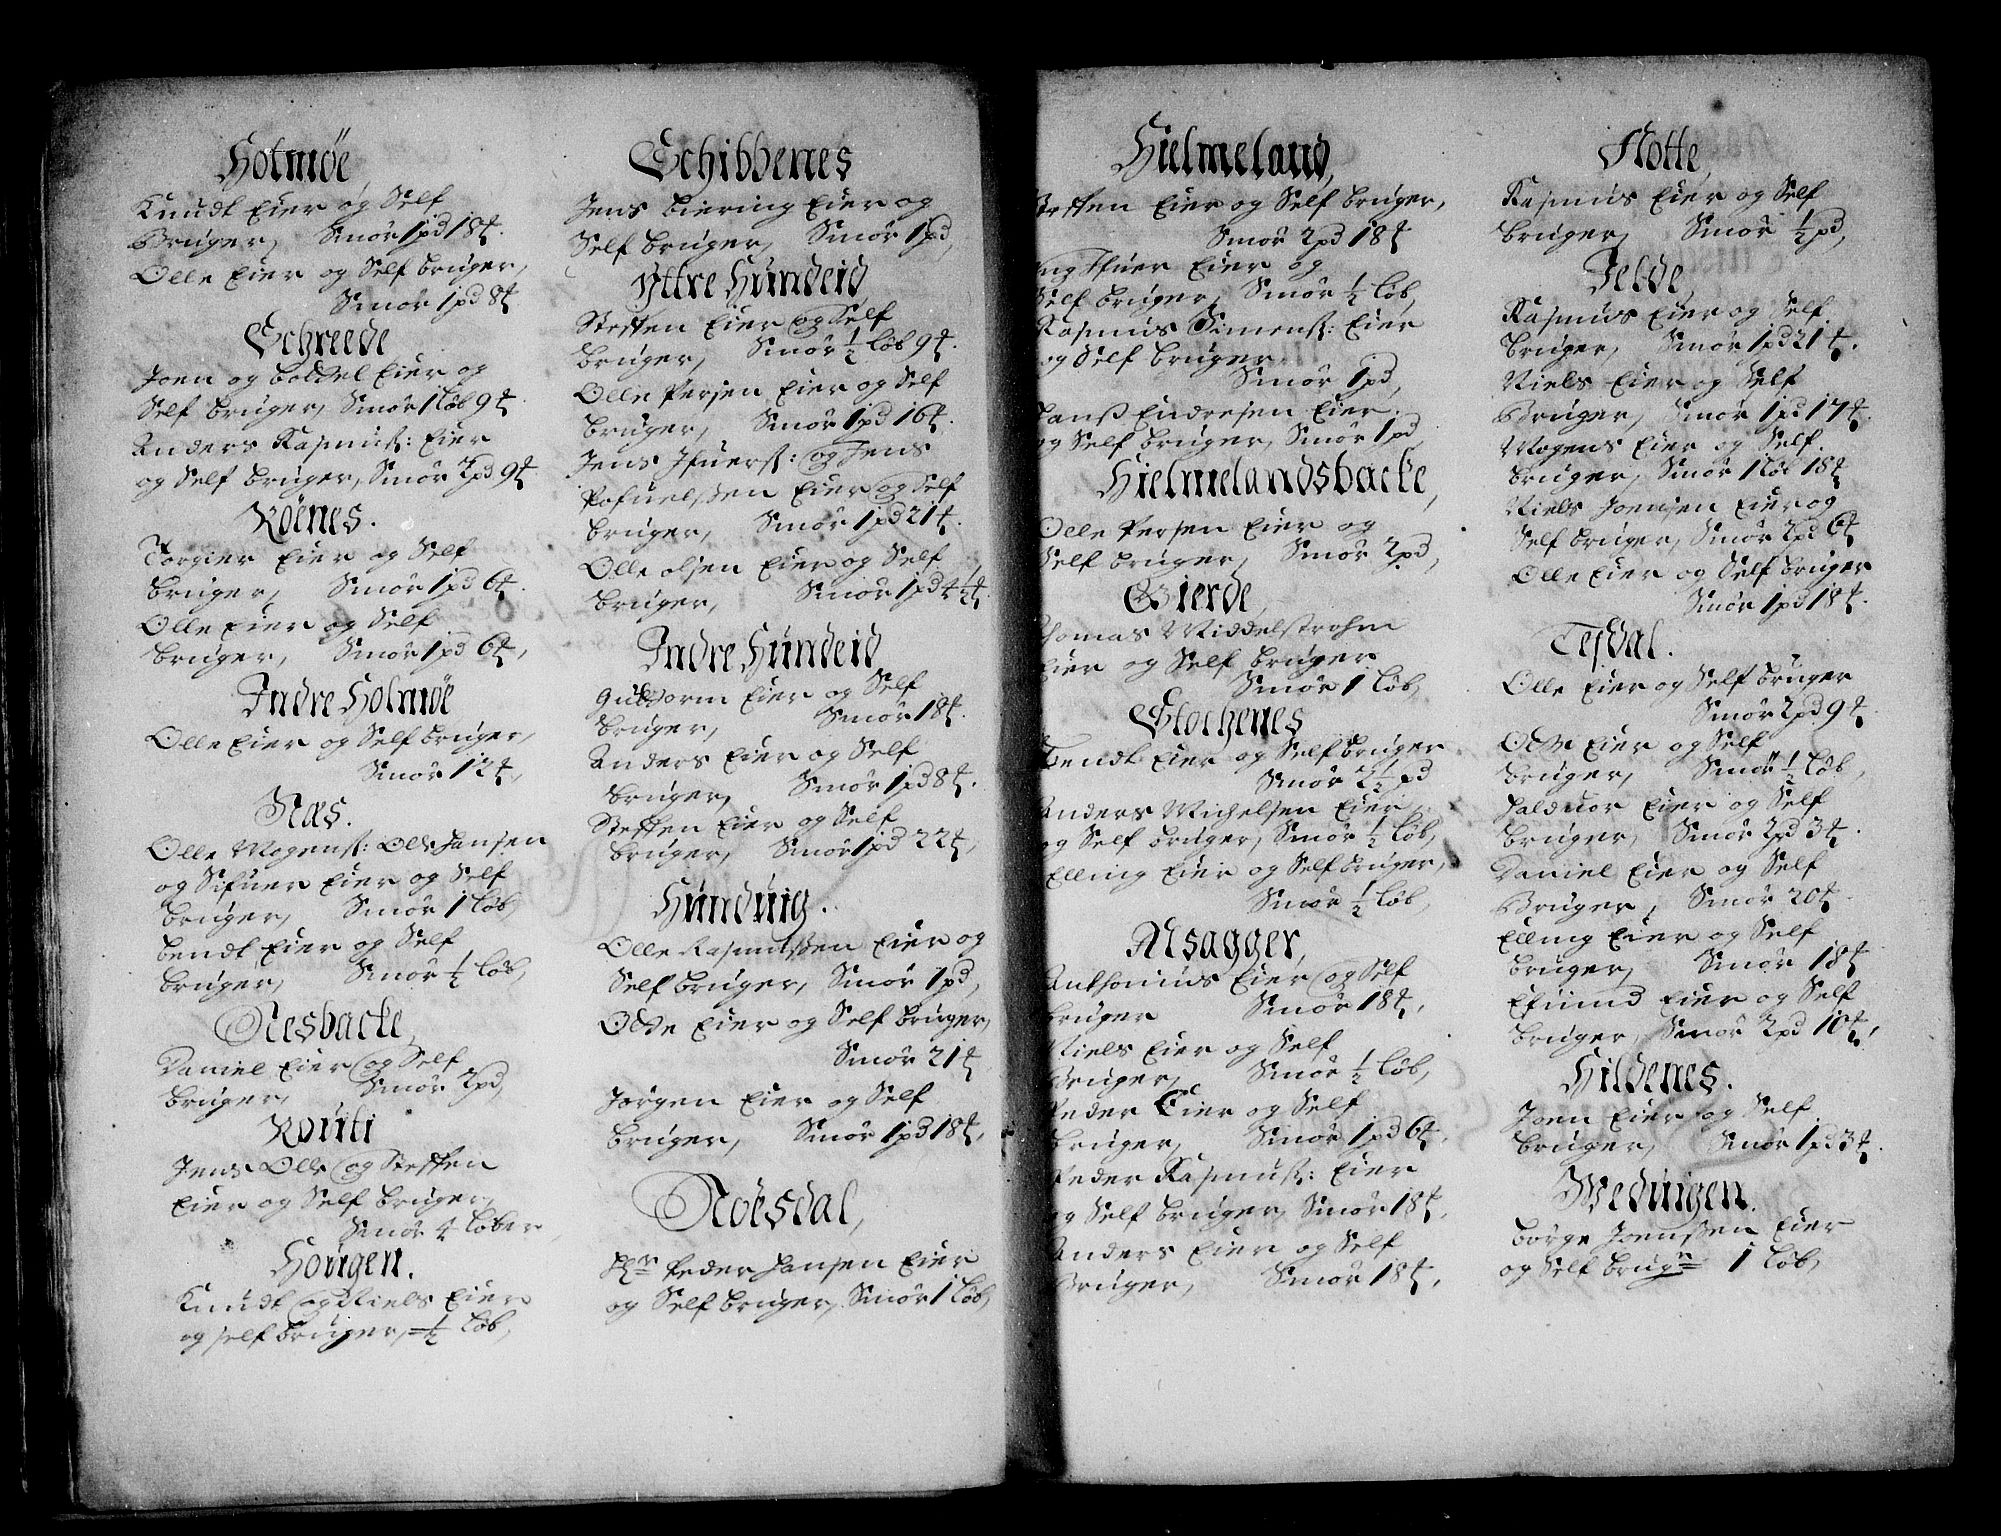 Holmøe
Knudt Eier og Self
Bruger, Smør 1 pd 18 ℔.
Olle Eier og Self bruger,
Smør 1 pd 8 ℔
Schreede
Joen og boldel Eier og
Self bruger, Smør 1 Løb 9 ℔.
Anders Rasmus: Eier
og Self bruger, Smør 2 pd 9 ℔
Röenes.
Torgier Eier og Self
bruger, Smør 1 pd 6 ℔.
Olle Eier og Self
bruger, Smør 1 pd 6 ℔,
Indre Holmøe
Olle Eier og Self bruger,
Smør 12 ℔,
Næs.
Olle Mogens: Olle Hansen
og Sifuer Eier og Self
bruger, Smør 1 Løb,
bendt Eier og Self
bruger, Smør ½ Løb,
Nesbacke,
Daniel Eier og Self
bruger, Smør 2 pd,
Routi
Jens Olle og Steffen
Eier og Self bruger,
Smør 4 Løber
Hougen.
Knudt og Niels Eier
og self bruger, ½ Løb,
Schibbenes
Jens biering Eier og
Self bruger, Smør 1 pd,
Yttre Hundeid
Steffen Eier og Self
bruger, Smør ½ Løb 9 ℔.
Olle Persen Eier og Self
bruger, Smør 1 pd 16 ℔.
Jens Ifuers: og Jens
Pofuelssen Eier og Self
bruger, Smør 1 pd 21 ℔.
Olle olsen Eier og Self
bruger, Smør 1 pd 4½ ℔.
Indre Hundeid,
Guldorm Eier og Self
bruger, Smør 18 ℔.
Anders Eier og Self
bruger, Smør 1 pd 8 ℔.
Steffen Eier og Self
bruger, Smør 1 pd 22 ℔,
Hunduig.
Olle Rasmussen Eier og
Self bruger, Smør 1 pd,
Olle Eier og Self bruger,
Smør 21 ℔
Jørgen Eier og Self
bruger, Smør 1 pd 18 ℔,
Nöesdal,
Hr Peder Hansen Eier
og Self bruger, Smør 1 Løb,
Hielmeland,
Steffen Eier og Self bruger,
Smør 2 pd 18 ℔
Eier og
Self bruger, Smør ½ Løb,
Rasmus Simens: Eier
og Self bruger
Smør 1 pd,
Hans Endresen Eier
og Self bruger, Smør 1 pd,
Hielmelandsbacke,
Olle Persen Eier og
Self bruger, Smør 2 pd,
Gierde,
Thomas Middelstrohm
Eier og Self bruger
Smør 1 Løb,
Stochenes
Bendt Eier og Self bruger
Smør 2½ pd
Anders Michelsen Eier
og Self bruger, Smør ½ Løb,
Elling Eier og Self bruger,
Smør ½ Løb,
Alsagger,
Anthonius Eier og Self
bruger Smør 18 ℔,
Niels Eier og Self
Bruger, Smør ½ Løb,
Peder Eier og Self
bruger, Smør 1 pd 6 ℔,
Peder Rasmus: Eier
og Self bruger, Smør 18 ℔,
Anders Eier og Self
Bruger, Smør 18 ℔,
Flotte,
Rasmus Eier og Self
bruger, Smør ½ pd,
Jelde,
Rasmus Eier og Self
bruger, Smør 1 pd 21 ℔.
Niels Eier og Self
Bruger, Smør 1 pd 17 ℔.
Mogens Eier og Self
bruger, Smør 1 Løb 18 ℔
Niels Joensen Eier og
Self bruger, Smør 2 pd 6 ℔
Olle Eier og Self bruger
Smør 1 pd 18 ℔.
Tesdal.
Olle Eier og Self bruger
Smør 2 pd 9 ℔
Olle Eier og Self
bruger, Smør ½ Løb,
Halduor Eier og Self
bruger, Smør 2 pd 3 ℔.
Daniel Eier og Self
Bruger, Smør 20 ℔.
Elling Eier og Self
bruger, Smør 18 ℔
Efuind Eier og Self
bruger, Smør 2 pd 10 ℔,
Hildenes.
Joen Eier og Self
bruger, Smør 1 pd 3 ℔.
Weduigen.
Børge Joenssen Eier
og Self brugr 1 Løb,